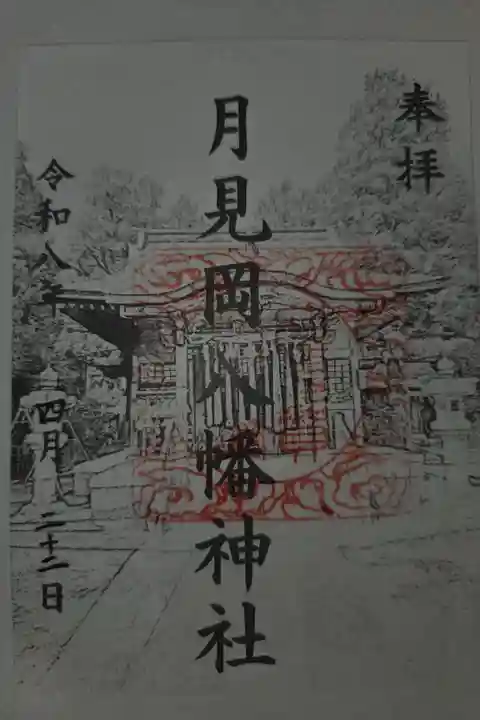 奉拝
月見岡八幡神社
令和八年 四月 二十二日